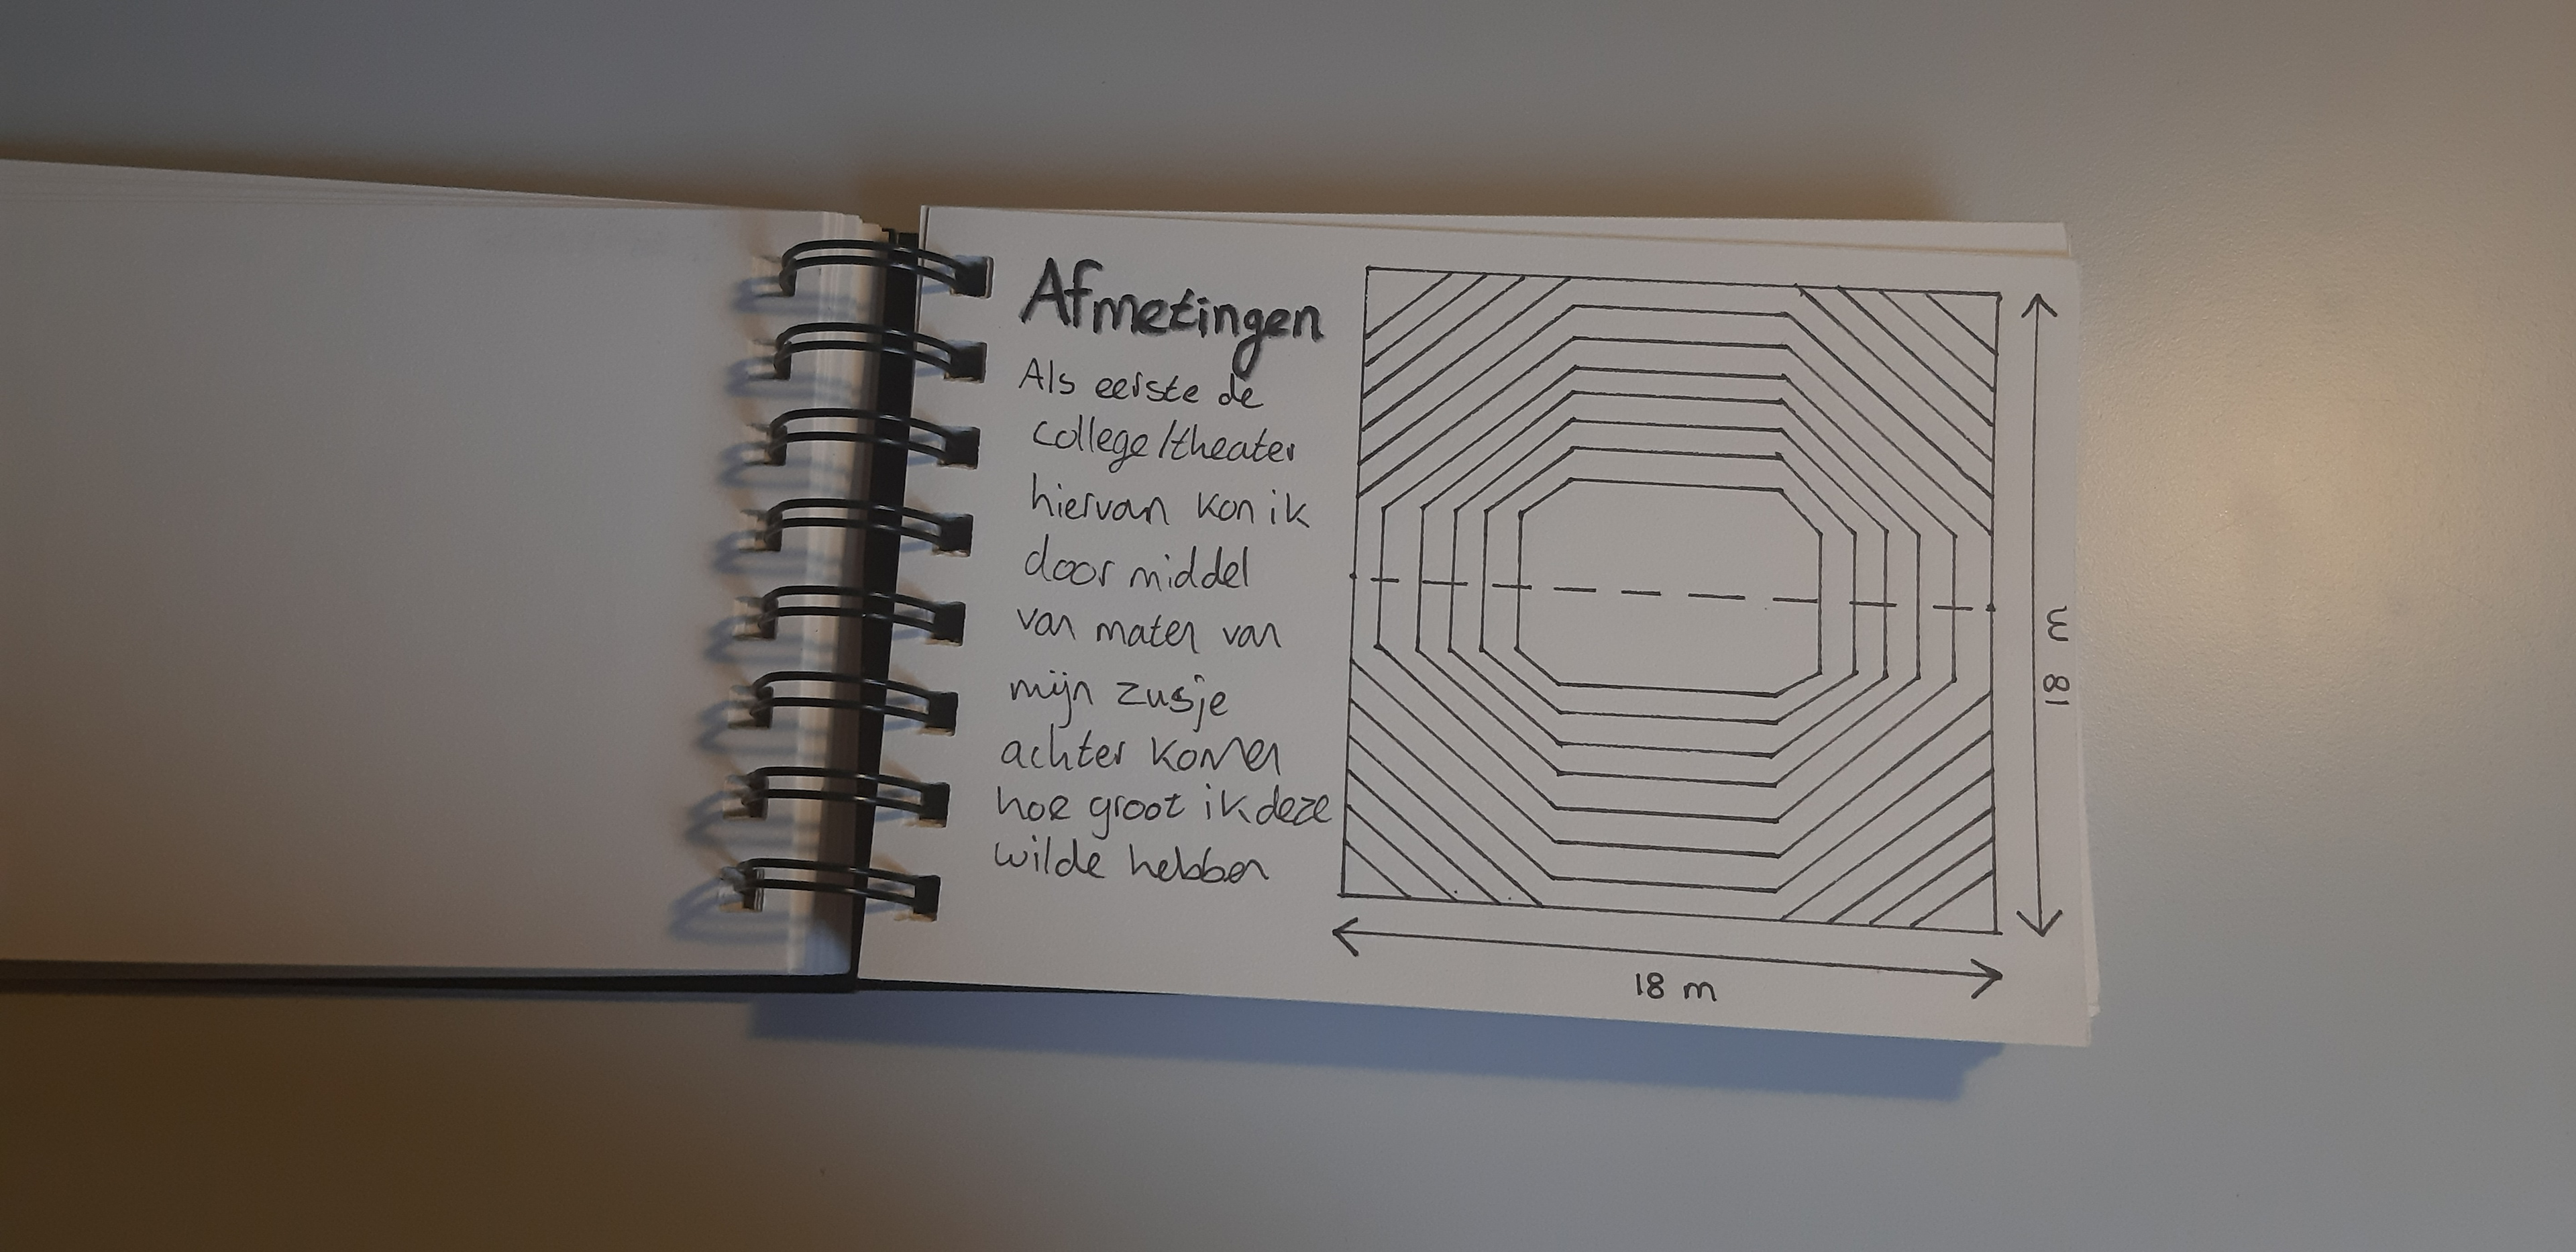 Afmetingen
Als eerste de
college/theater
hiervan kon ik
door middel
van maten van
mijn zusje
achter komen
hoe groot ik deze
wilde hebben
18 m
18 m